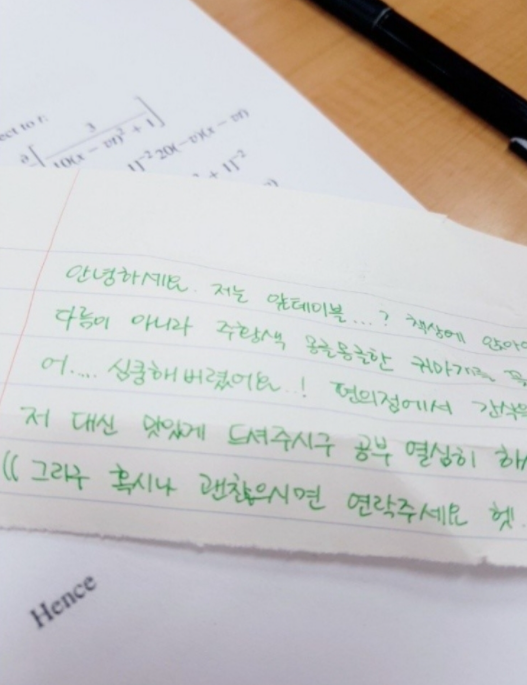 ect to t:
∂[3/10(x − vt)² + 1]
1]⁻² 20(−v)(x − vt)
+ 1]⁻²
안녕하세요. 저는 앞테이블...? 책상에 앉아
다름이 아니라 주황색 몽글몽글한 귀마개를
어.... 심쿵해버렸어요..! 편의점에서 간식
저 대신 맛있게 드셔주시구 공부 열심히 하
(( 그리구 혹시나 괜찮으시면 연락주세요 헷
Hence